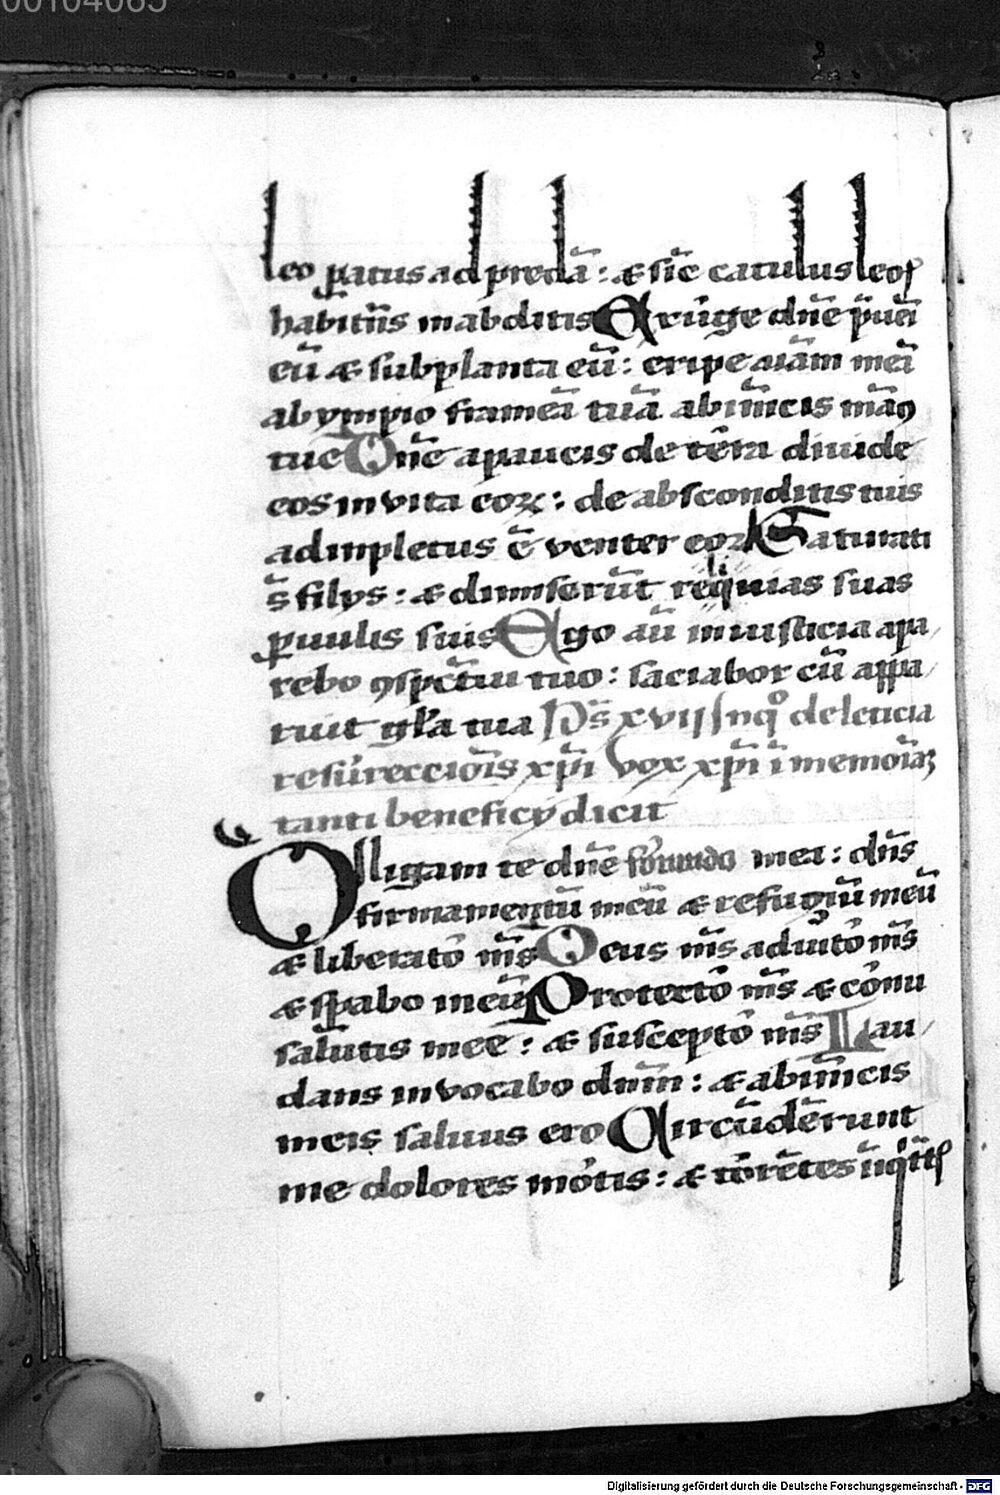 00104065
leo paratus ad predā : & sic̄ catulus leoſ
habitn̄s in abditis Exürge dn̄e p̄uēi
eū & subplanta eū : eripe aīam meā
ab ympio frameā tuā ab inīmicis man9
tue Dn̄e a paucis de tēra diuide
eos in vita eoꝝ : de absconditis tuis
adinpletus ē venter eoꝝ Saturati
s̄ filys : & dimiserūt reliq̄uias suas
ꝑuulis suis Ego aū in iusticia apa/
rebo ꝯspc̄tui tuo : saciabor cū appa/
ruit gl̄a tua Ps̄ xvij In qͦ de leticia
resúrecciōis xp̄i Vox xp̄i ī memoīaꝫ
tanti beneficÿ dicit
Diligam te dn̄e mea : dn̄s
firmamentū meū & refugiū meū
& liberatō m̄s Deus m̄s adiutō m̄s
& sꝑabo in eū Protectō m̄s & cōnu
salutis mee : & susceptō m̄s Lau/
dans invocabo dn̄m : & ab inīmicis
meis saluus ero Circūdēderunt
me dolores mōtis : & tōrētes
Digitalisierung gefördert durch die Deutsche Forschungsgemeinschaft - DFG